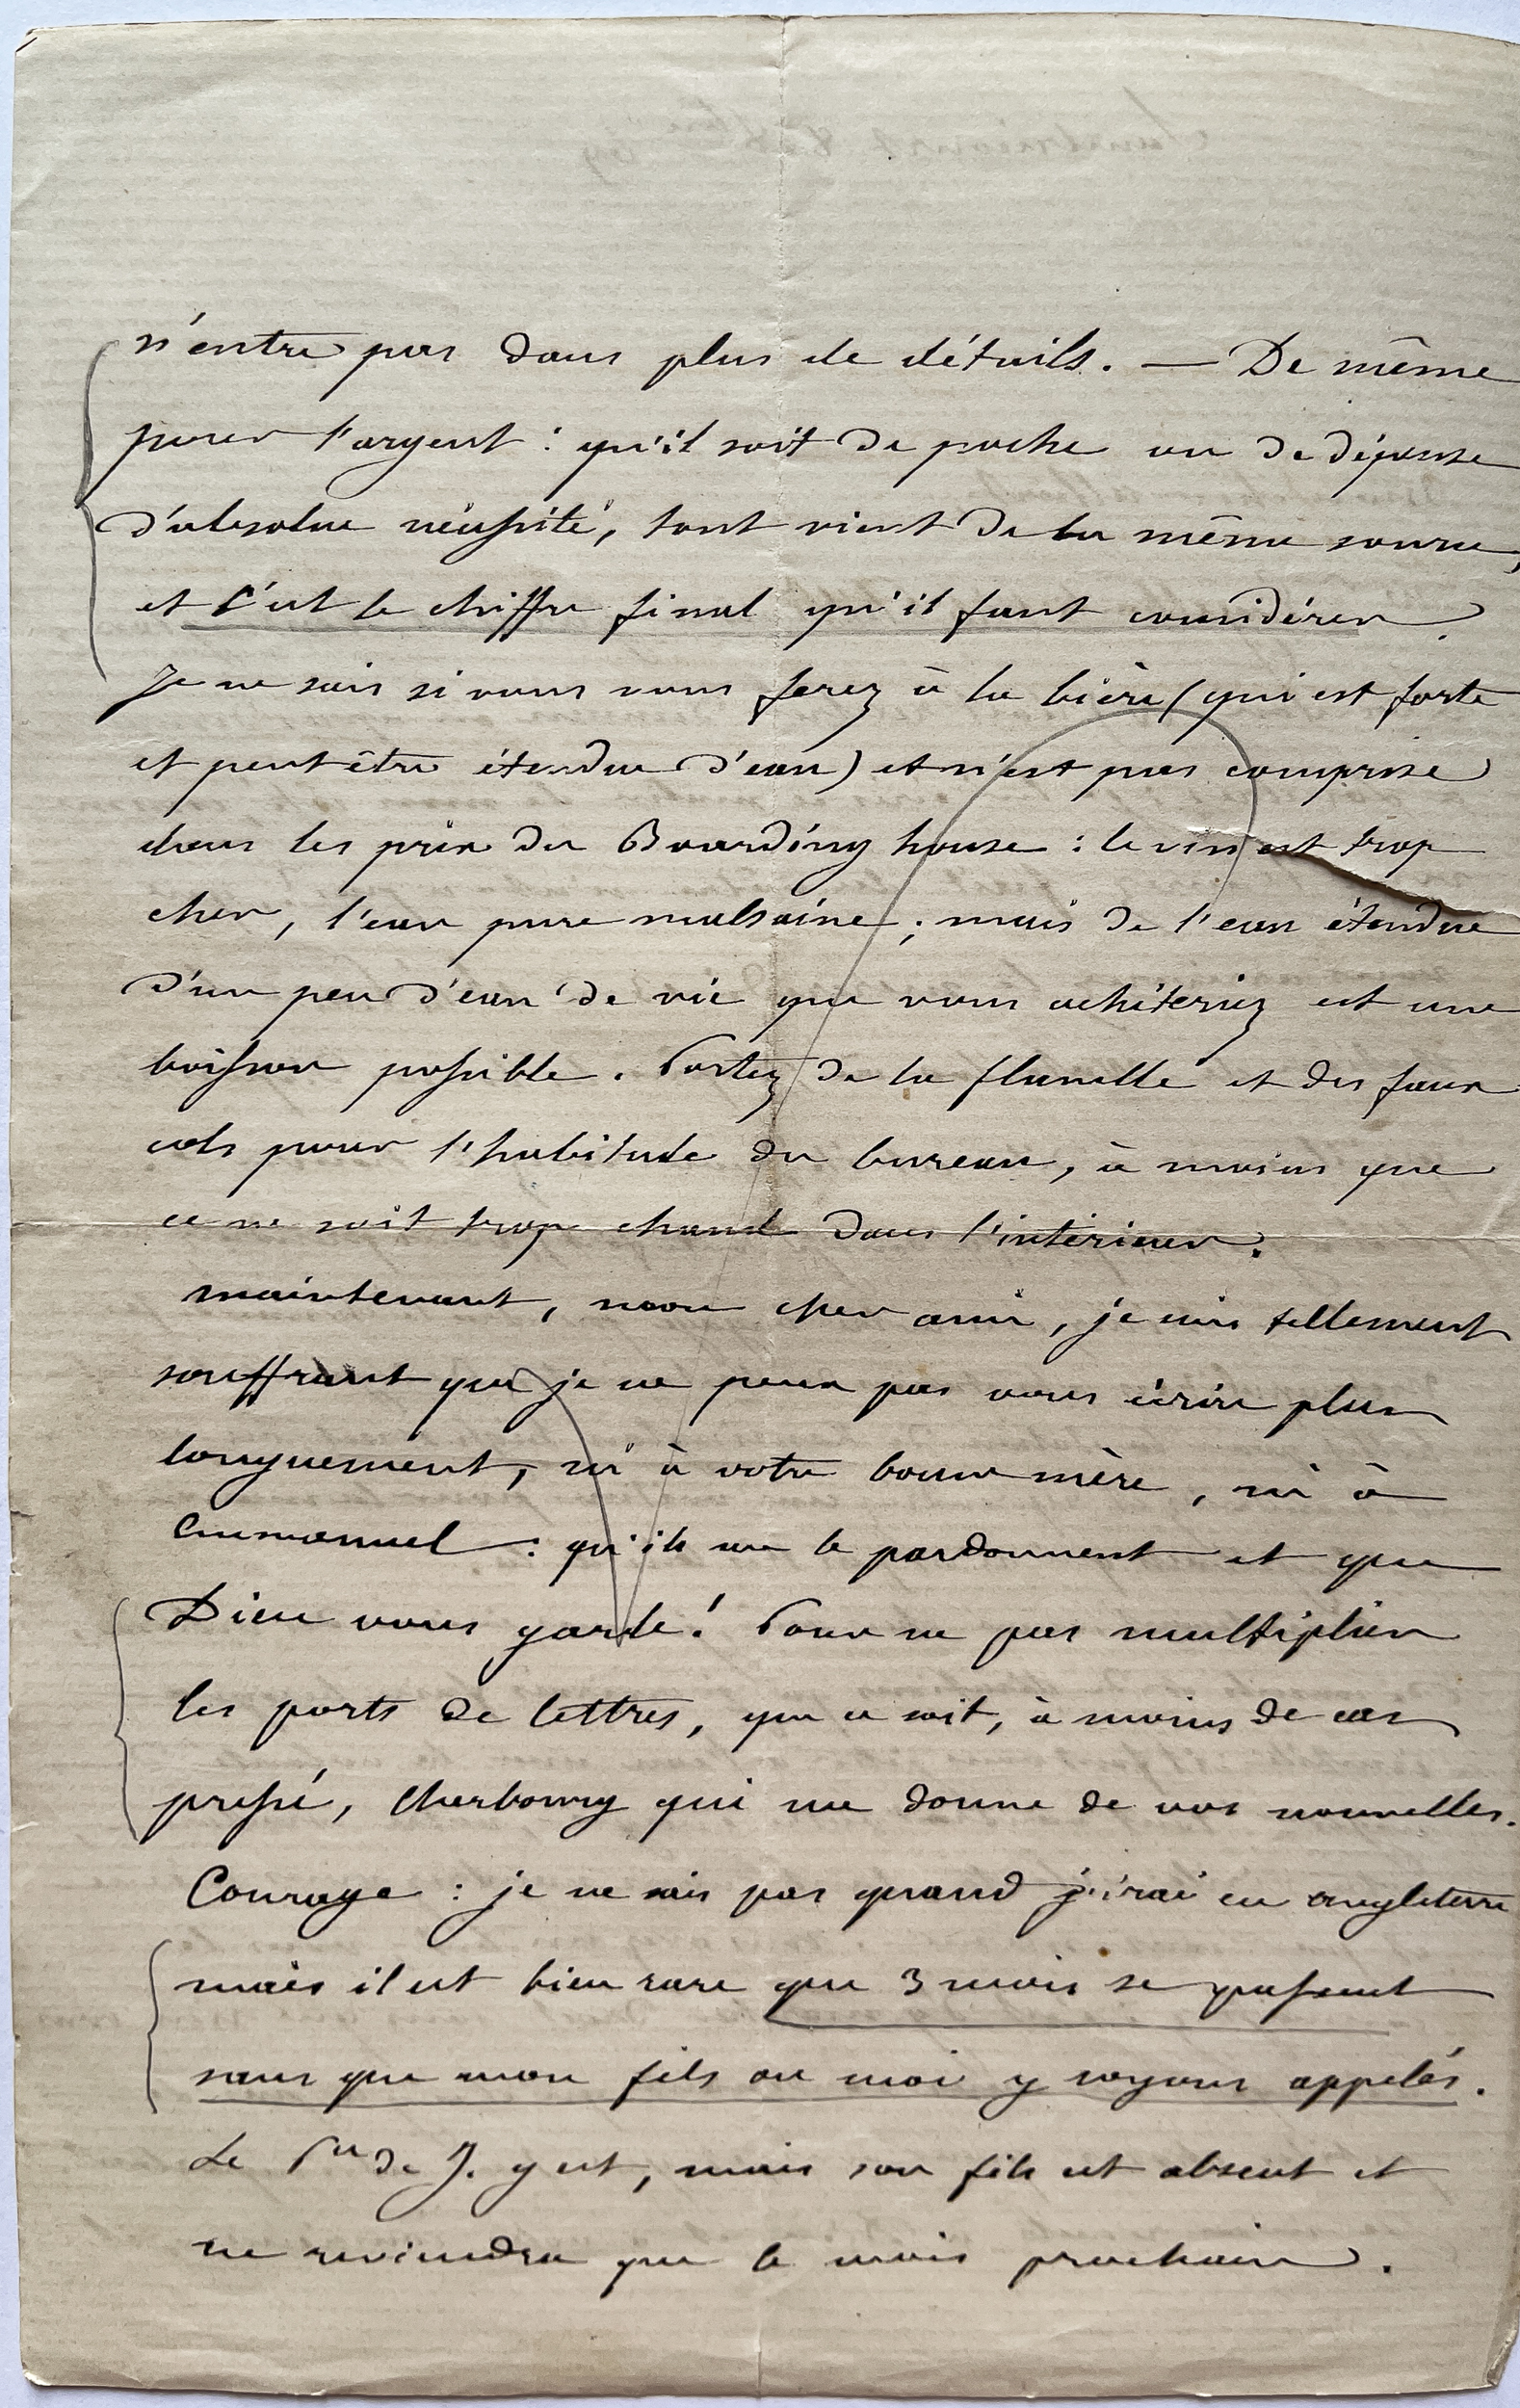 n'entre pas dans plus de détails. — De même
pour l'argent : qu'il soit de poche ou de dépense
d'absolue nécessité, tout vient de la même source,
et c'est le chiffre final qu'il faut considérer.
Je ne sais si vous vous ferez à la bière (qui est forte
et peut être étendue d'eau) et n'est pas comprise
dans les prix du Boarding house : le vin est trop
cher, l'eau pure malsaine ; mais de l'eau étendue
d'un peu d'eau de vie que vous achèteriez est une
boisson possible. Portez de la flanelle et des faux
cols pour l'habitude du bureau, à moins que
ce ne soit trop chaud dans l'intérieur.
maintenant, mon cher ami, je suis tellement
souffrant que je ne peux pas vous écrire plus
longuement, ni à votre bonne mère, ni à
Emmanuel : qu'ils me le pardonnent et que
Dieu vous garde ! Pour ne pas multiplier
les ports de lettres, que ce soit, à moins de cas
pressé, Cherbourg qui me donne de vos nouvelles.
Courage : je ne sais pas quand j'irai en angleterre
mais il est bien rare que 3 mois se passent
sans que mon fils ou moi y soyons appelés.
Le Pce de J. y est, mais son fils est absent et
ne reviendra que le mois prochain.